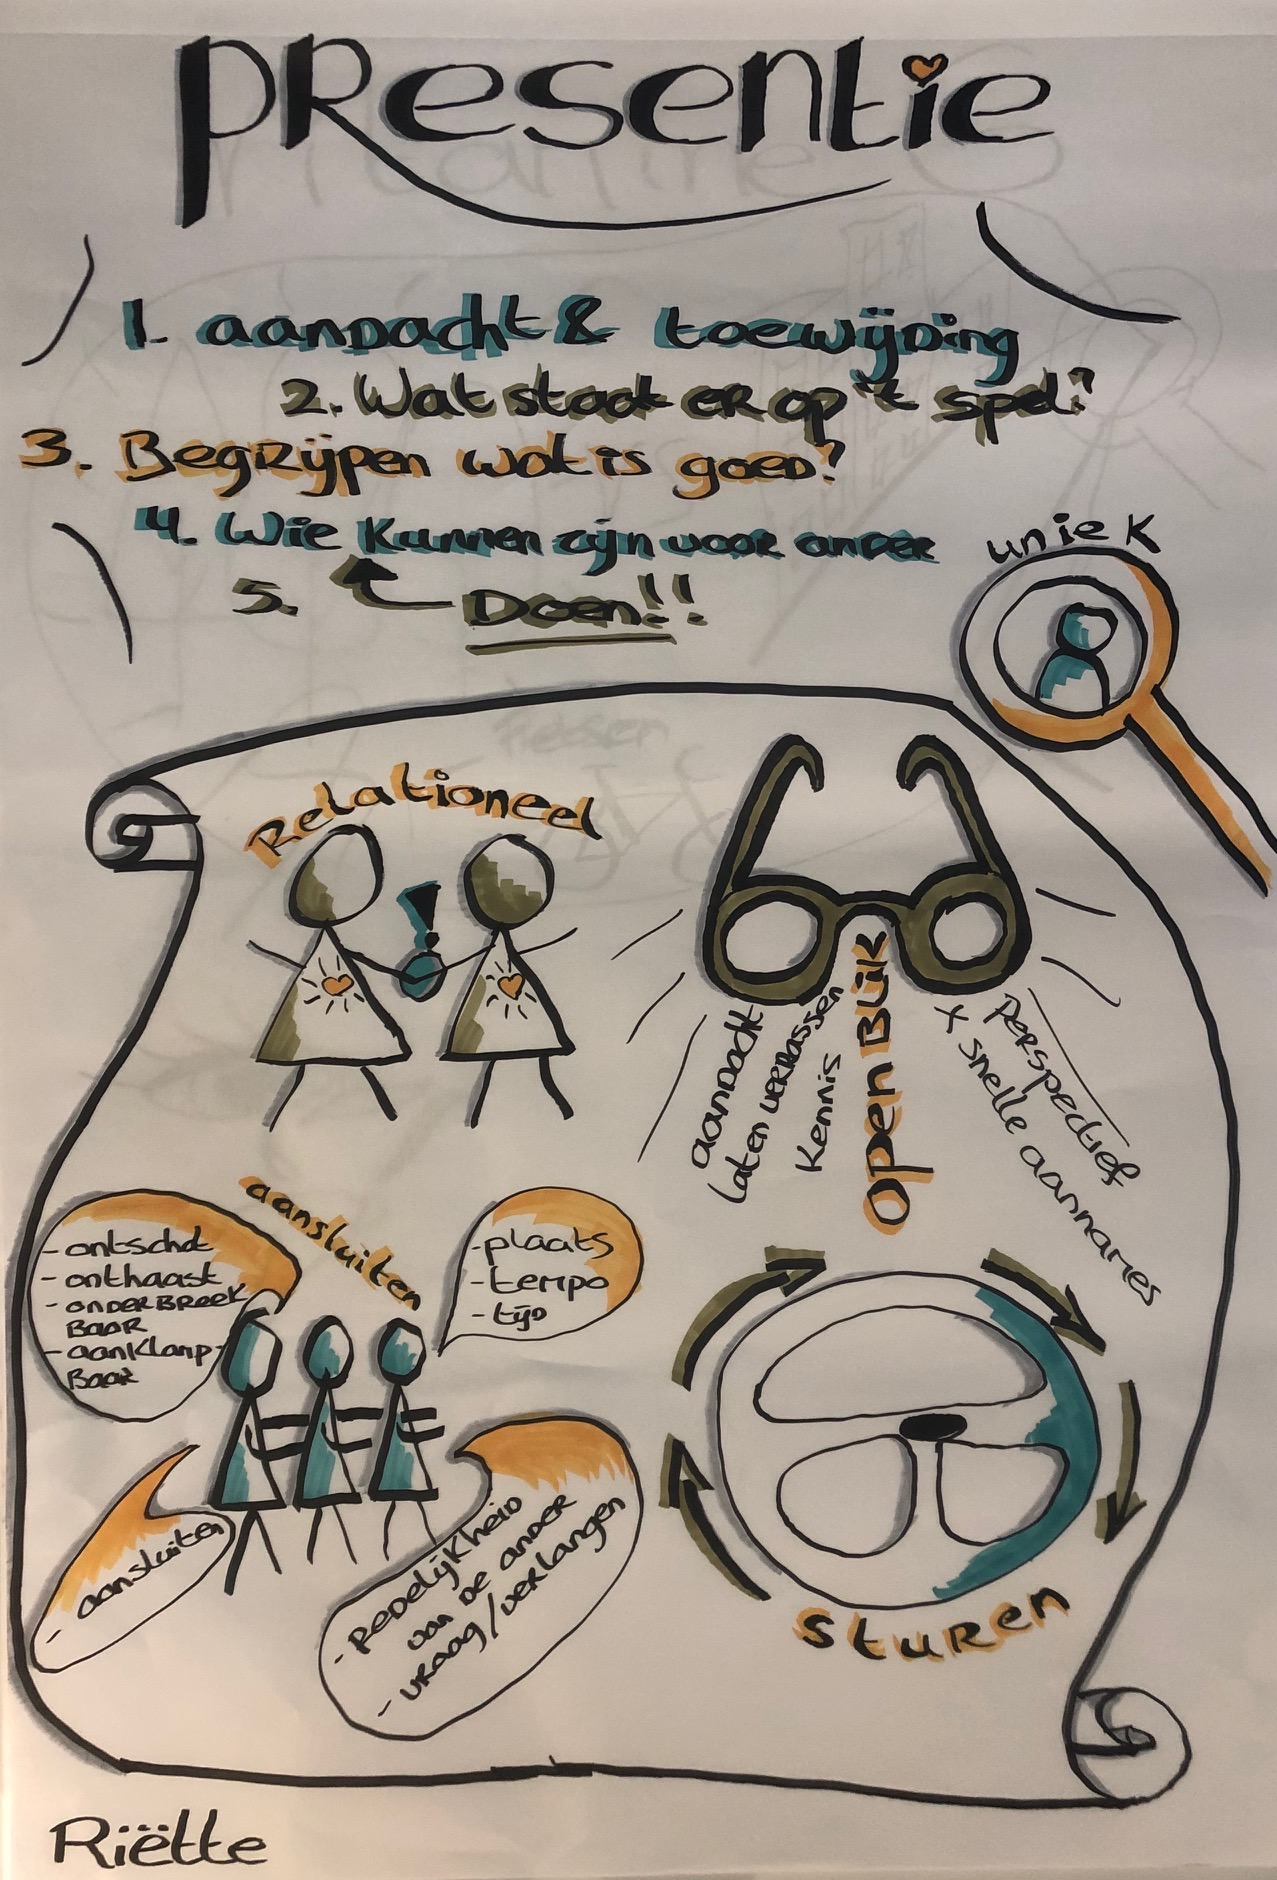 PResentie
1. aandacht & toewijding
2. Wat staat er op 't spel?
3. Begrijpen wat is goed?
4. Wie kunnen zijn voor ander
5. Doen!!
uniek
Relationeel
Open Blik
aandacht
Laten verrassen
Kennis
perspectief
x snelle aannames
aansluiten
- ontschot
- onthaast
- onderBreek
Baar
- aanklamp-
Baar
- plaats
- tempo
- tijd
- aansluiten
- Redelijkheid
van de ander
- vraag/verlangen
stuRen
Riëtte